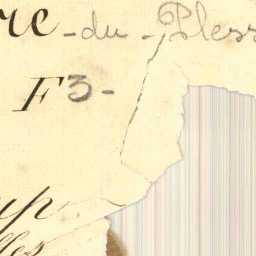 re - du - Pless
F3 -
up
lles